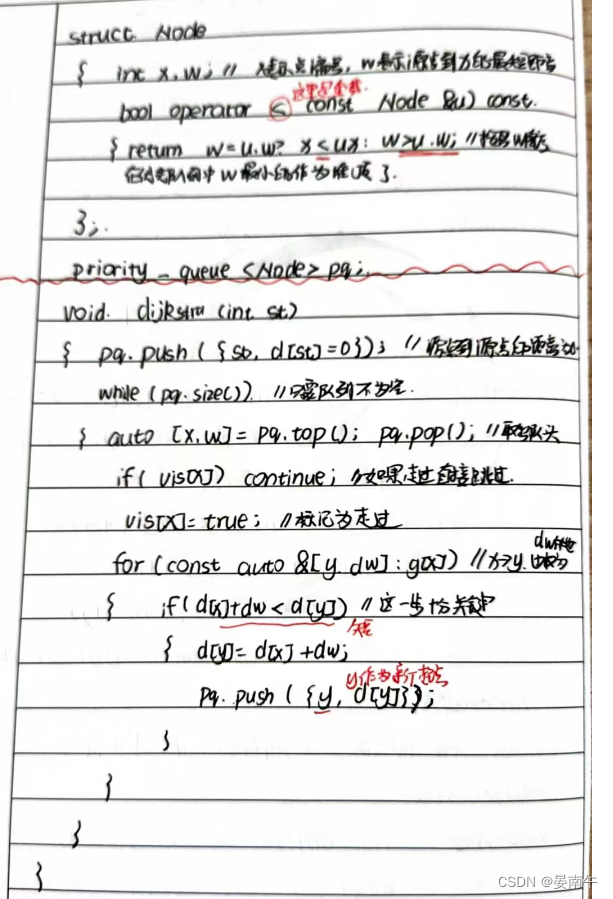 struct Node
{ int x, w; // 表示点编号, w表示源点到x的最短距离
这里是重载
bool operator < const Node &u) const.
{ return w=u.w? x<ux: w>u.w; //
w最小的作为堆顶 }.
};.
priority_queue <Node> pq;
void. dijkstra (int st)
{ pq.push ({st, d[st]=0}); // 源点到源点的距离为0.
while (pq.size()). //只要队列不为空.
{ auto [x,w]=pq.top(); pq.pop(); //取出队头
if( vis[x]) continue; //如果走过直接跳过.
vis[x]=true; //标记为走过
for (const auto &[y dw]: g[x]) // x→y. dw
{ if(d[x]+dw<d[y]) // 这一步十分关键
{ d[y]= d[x]+dw;
y作为新起点
pq. push ({y, d[y]});
}
}
}
}
CSDN @晏南午